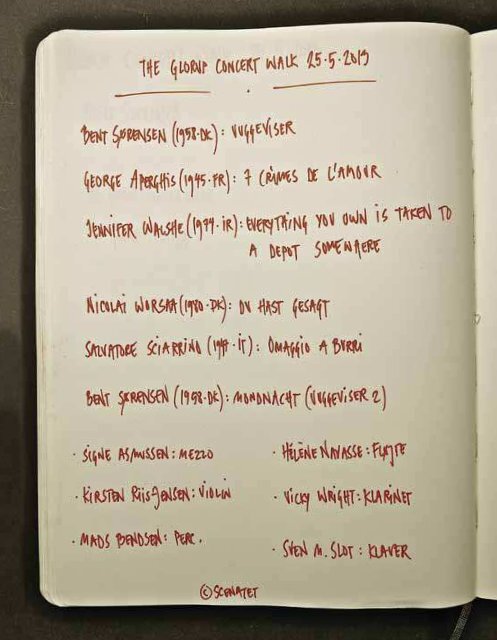 THE GLORUP CONCERT WALK 25.5.2019
BENT SØRENSEN (1958.DK): VUGGEVISER
GEORGE APERGHIS (1945.FR): 7 CRIMES DE L'AMOUR
JENNIFER WALSHE (1974.IR): EVERYTHING YOU OWN IS TAKEN TO
A DEPOT SOMEWHERE
NICOLAI WORSAA (1980.DK): DU HAST GESAGT
SALVATORE SCIARRINO (1947.IT): OMAGGIO A BURRI
BENT SØRENSEN (1958.DK): MONDNACHT (VUGGEVISER 2)
· SIGNE ASMUSSEN: MEZZO
· HÉLÈNE NAVASSE: FLØJTE
· KIRSTEN RIIS-JENSEN: VIOLIN
· VICKY WRIGHT: KLARINET
· MADS BENDSEN: PERC.
· SVEN M. SLOT: KLAVER
© SCENATET